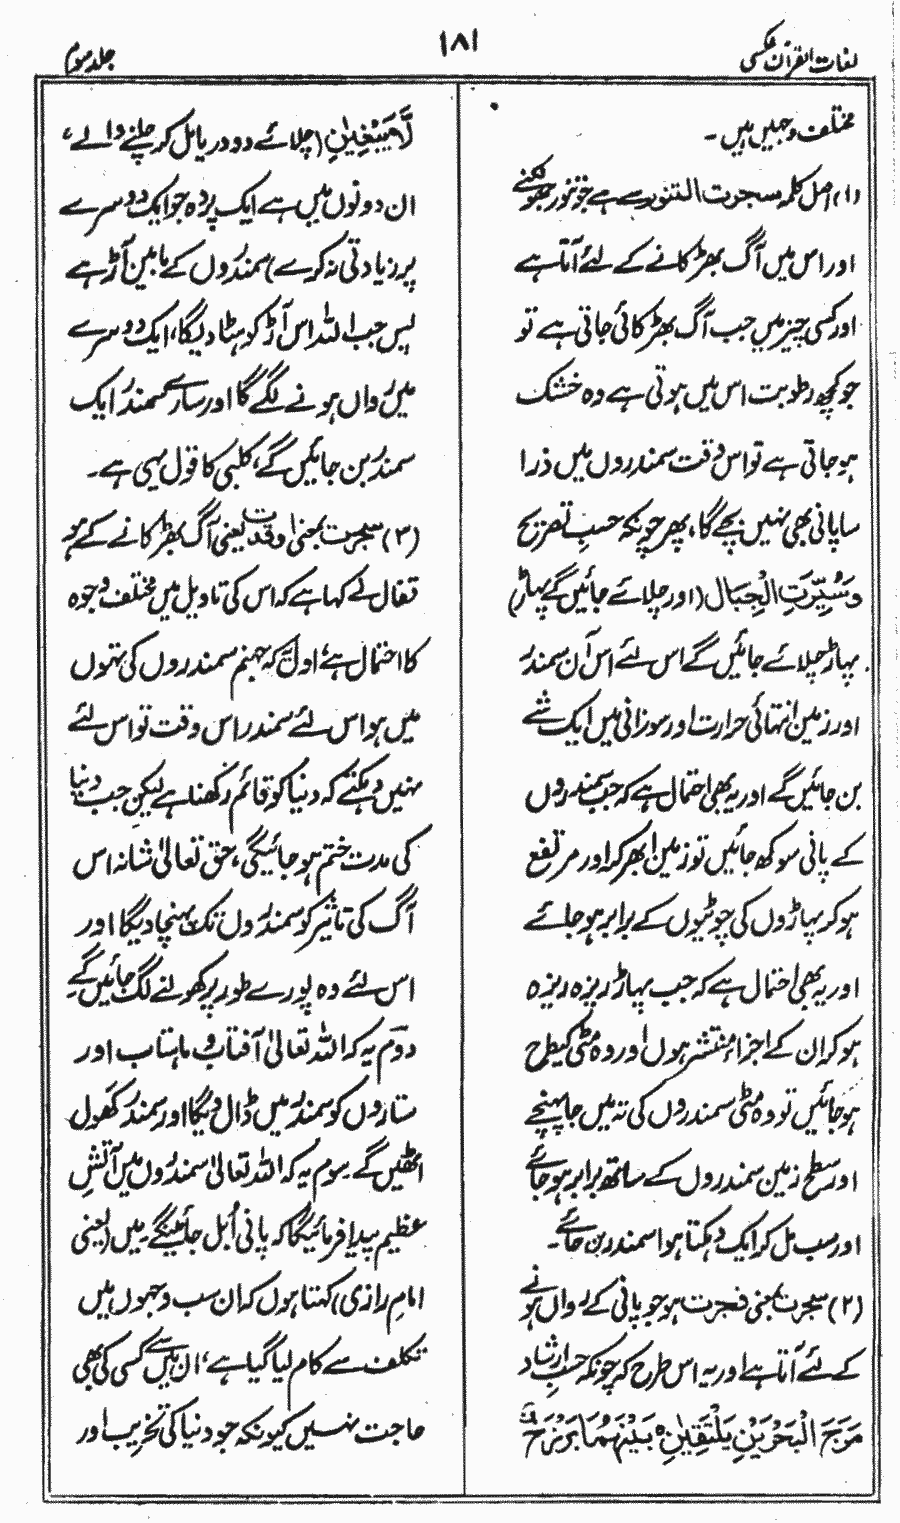 لغات القرآن عکسی
۱۸۱
جلد سوم
مختلف وجہیں ہیں ۔
(۱) اصل کلمہ سجرت التنور سے ہے جو تنور جھونکنے
اور اس میں آگ بھڑکانے کے لئے آتا ہے
اور کسی چیز میں جب آگ بھڑکائی جاتی ہے تو
جو کچھ رطوبت اس میں ہوتی ہے وہ خشک
ہو جاتی ہے تو اس وقت سمندروں میں ذرا
سا پانی بھی نہیں بچے گا، پھر چونکہ حسبِ تصریح
وَسُيِّرَتِ الْجِبَالُ (اور چلائے جائیں گے پہاڑ)
پہاڑ چلائے جائیں گے اس لئے اس آن سمندر
اور زمین انتہائی حرارت اور سوزانی میں ایک شے
بن جائیں گے اور یہ بھی احتمال ہے کہ جب سمندروں
کے پانی سوکھ جائیں تو زمین ابھر کر اور مرتفع
ہو کر پہاڑوں کی چوٹیوں کے برابر ہو جائے
اور یہ بھی احتمال ہے کہ جب پہاڑ ریزہ ریزہ
ہو کر ان کے اجزاء منتشر ہوں اور وہ مٹی کیطرح
ہو جائیں تو وہ مٹی سمندروں کی تہ میں جا پہنچے
اور سطح زمین سمندروں کے ساتھ برابر ہو جائے
اور سب مل کر ایک دہکتا ہوا سمندر بن جائے ۔
(۲) سجرت بمعنی فجرت ہو جو پانی کے رواں ہونے
کے لئے آتا ہے اور یہ اس طرح کہ چونکہ حسب ارشاد
مَرَجَ الْبَحْرَيْنِ يَلْتَقِيٰنِ ہ بَيْنَهُمَا بَرْزَخٌ
لَّا يَبْغِيٰنِ (چلائے دو دریا مل کر چلنے والے،
ان دونوں میں ہے ایک پردہ جو ایک دوسرے
پر زیادتی نہ کرے) سمندروں کے مابین آڑ ہے
پس جب اللہ اس آڑ کو ہٹا دیگا، ایک دوسرے
میں رواں ہونے لگے گا اور سارے سمندر ایک
سمندر بن جائیں گے، کلبی کا قول یہی ہے ۔
(۳) سجرت بمعنی اوقدت یعنی آگ بھڑکانے کے ہو
قفال نے کہا ہے کہ اس کی تاویل میں مختلف وجوہ
کا احتمال ہے، اول یہ کہ جہنم سمندروں کی تہوں
میں ہو اس لئے سمندر اس وقت تو اس لئے
نہیں دہکتے کہ دنیا کو قائم رکھنا ہے لیکن جب دنیا
کی مدت ختم ہو جائیگی، حق تعالیٰ شانہ اس
آگ کی تاثیر کو سمندروں تک پہنچا دیگا اور
اس لئے وہ پورے طور پر کھولنے لگ جائیں گے
دوم یہ کہ اللہ تعالیٰ آفتاب و ماہتاب اور
ستاروں کو سمندر میں ڈال دیگا اور سمندر کھول
اٹھیں گے سوم یہ کہ اللہ تعالیٰ سمندروں میں آتشِ
عظیم پیدا فرمائیگا کہ پانی اُبل جائینگے میں (یعنی
امامِ رازی) کہتا ہوں کہ ان سب وجہوں میں
تکلف سے کام لیا گیا ہے، ان میں سے کسی کی بھی
حاجت نہیں کیونکہ جو دنیا کی تخریب اور